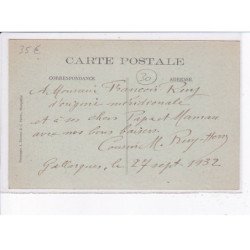 35€
CARTE POSTALE
CORRESPONDANCE
30
ADRESSE
A Monsieur François Rey
d'origine méridionale
et à ses chers Papa et Maman
avec nos bons baisers
Cousine M. Rey-
Gallargues, le 27 sept 1932